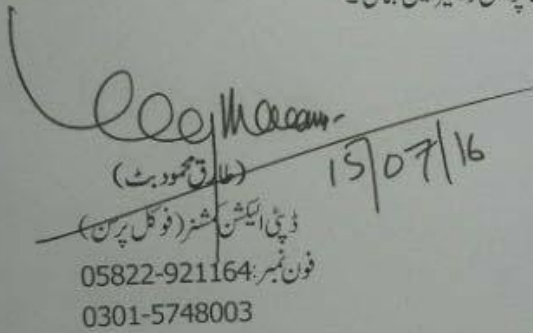 15/07/16
(طارق محمود بٹ)
ڈپٹی الیکشن کمشنر (فوکل پرسن)
فون نمبر: 05822-921164
0301-5748003